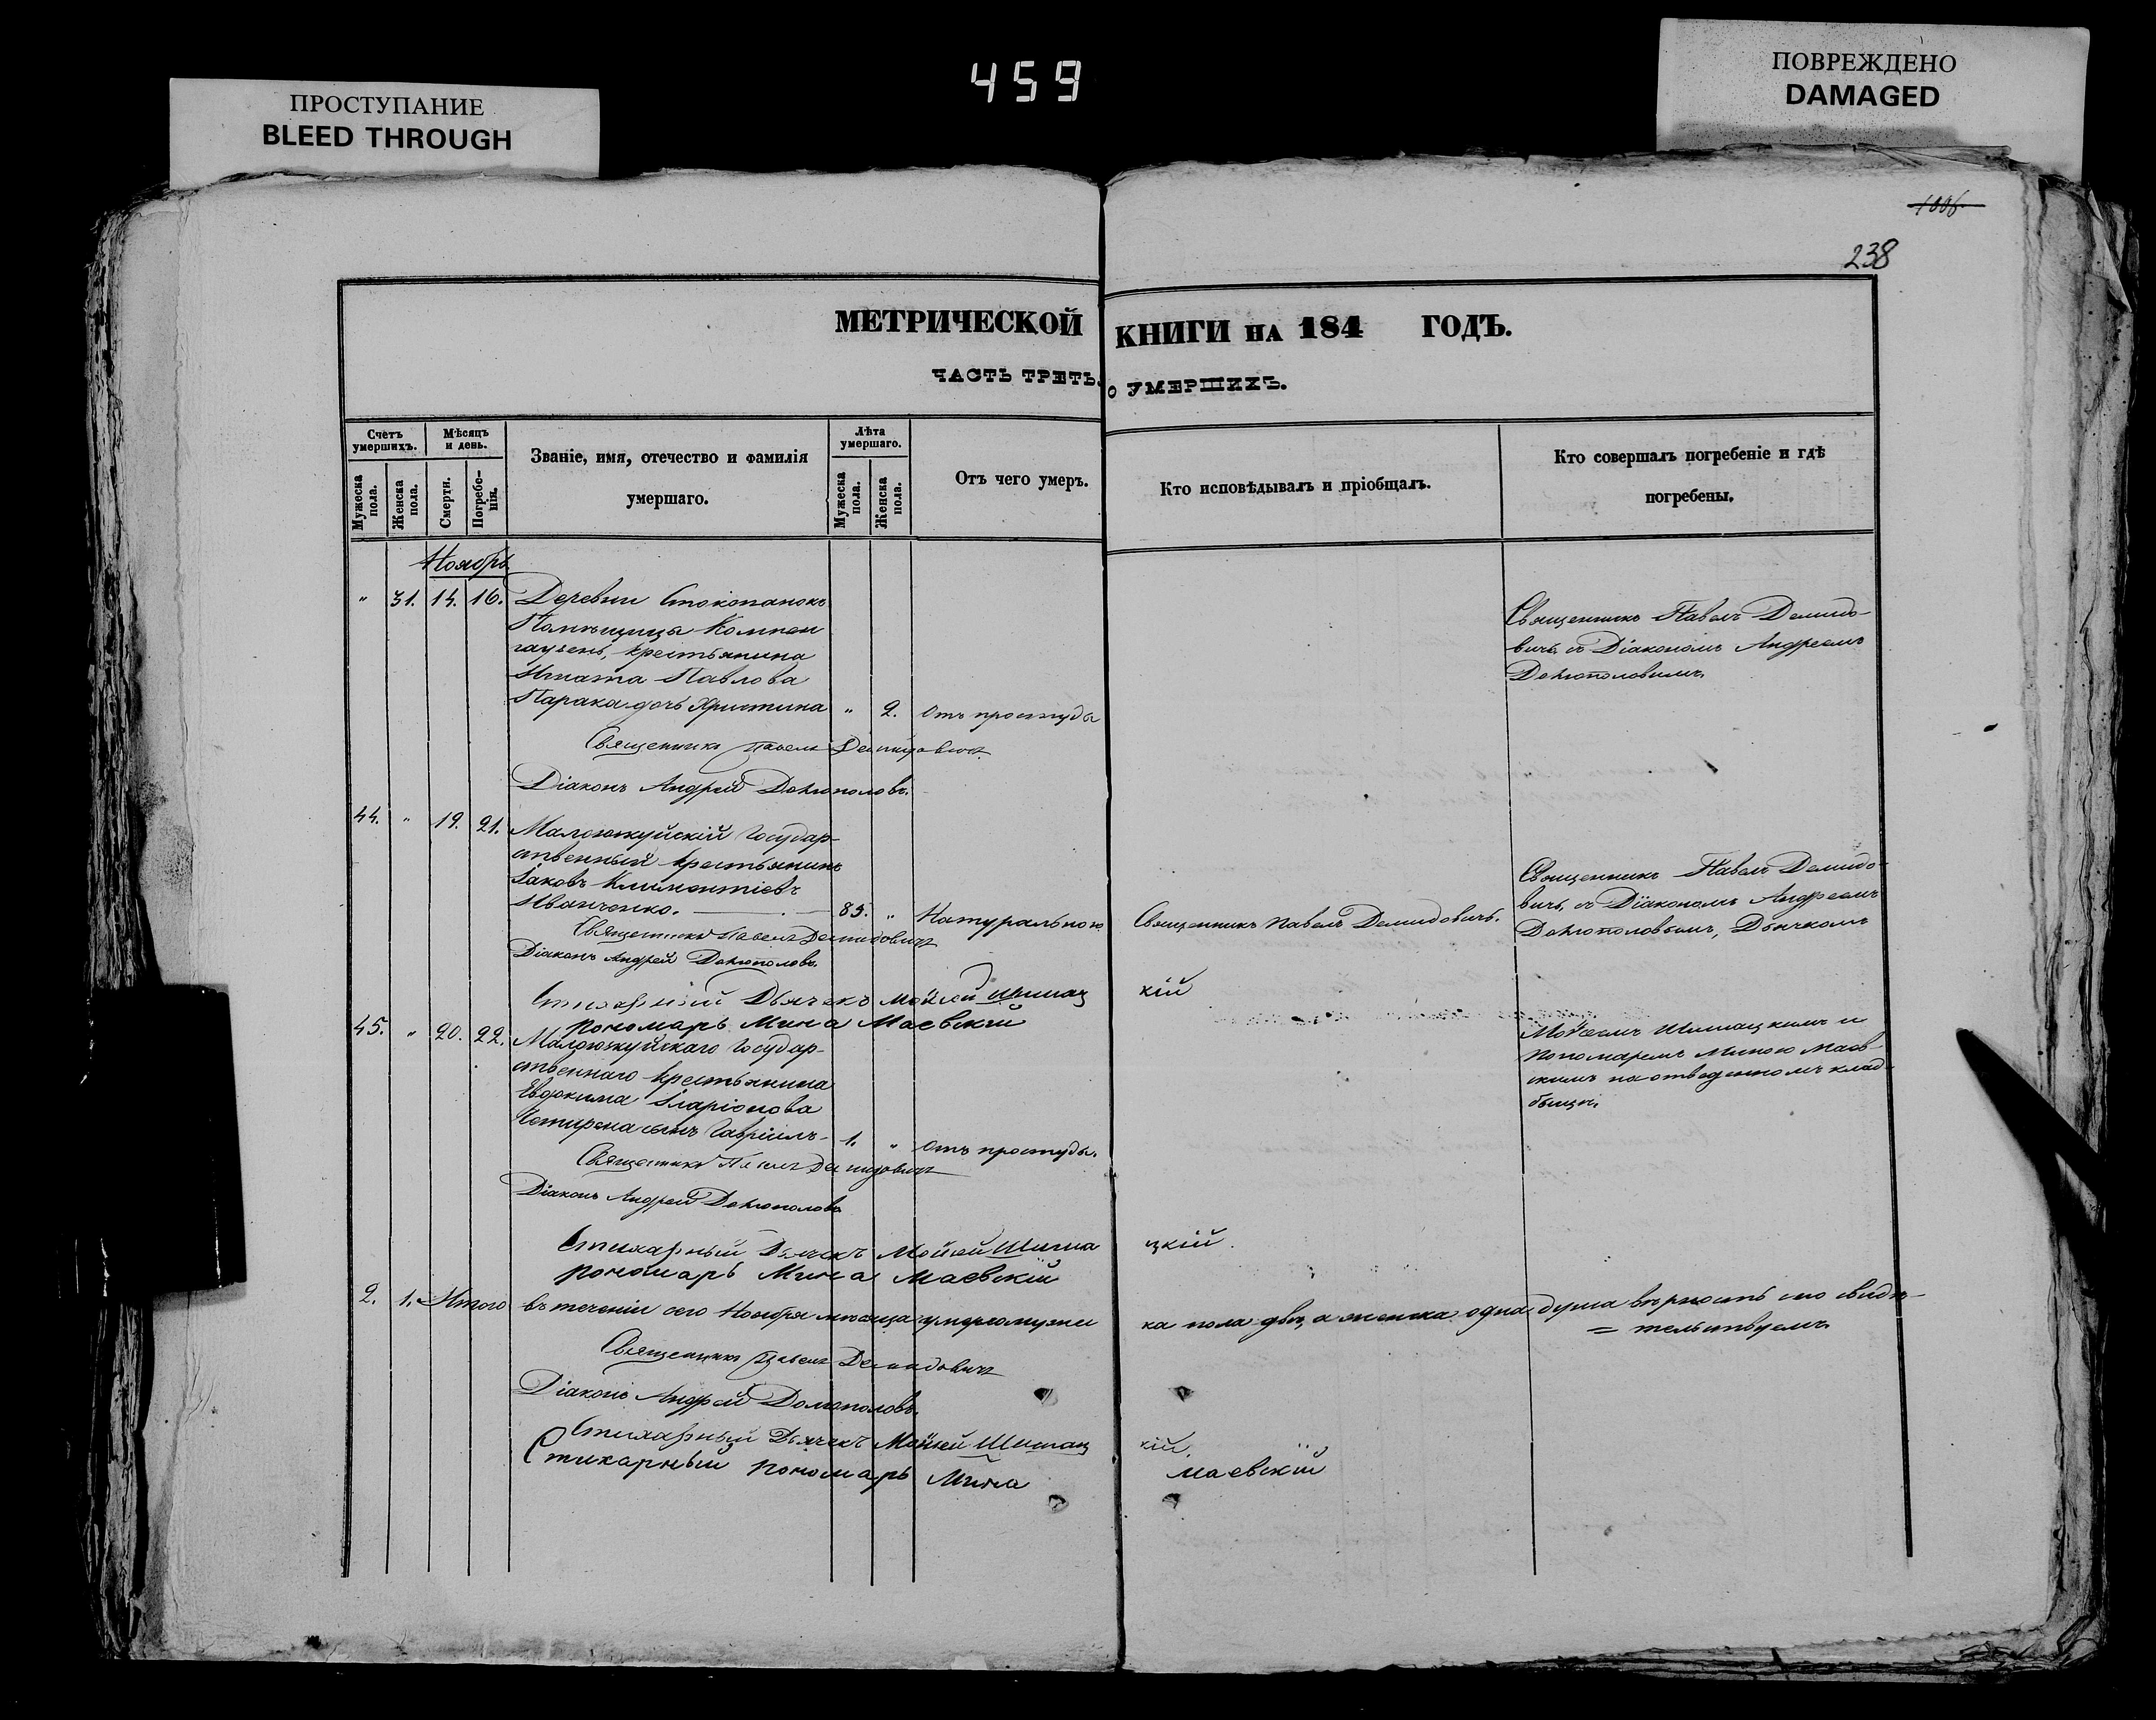 459
ПРОСТУПАНИЕ
BLEED THROUGH
ПОВРЕЖДЕНО
DAMAGED
1006
238
МЕТРИЧЕСКОЙ КНИГИ НА 184 ГОДЪ.
ЧАСТЬ ТРЕТЬ. О УМЕРШИХЪ.
Счетъ умершихъ.
Мужеска пола.
Женска пола.
Мѣсяцъ и день.
Смерти.
Погребе-
нія.
Званіе, имя, отечество и фамилія
умершаго.
Лѣта умершаго.
Мужеска пола.
Женска пола.
Отъ чего умеръ.
Кто исповѣдывалъ и пріобщалъ.
Кто совершалъ погребеніе и гдѣ
погребены.
Ноябрь.
" 31. 14. 16. Деревни
Помѣщица
крестьянина
Игната Павлова
дочь Христина " 2. Отъ простуды
Священникъ Павелъ Демидо-
вичъ, съ Діакономъ Андреемъ
Священникъ Павелъ Демидовичъ
Діаконъ Андрей
44. " 19. 21. Государ-
ственный крестьянинъ
Іаковъ Климентіевъ
Иванченко. 85. " Натуральною Священникъ Павелъ Демидовичъ.
Священникъ Павелъ Демидо-
вичъ, съ Діакономъ Андреемъ
Дьячкомъ
Священникъ Павелъ Демидовичъ
Діаконъ Андрей
Стихарный Дьячекъ Моисей Шимац кій
Пономарь Мина Маевскій
45. " 20. 22. Государ-
ственнаго крестьянина
Евдокима Іларіонова
сынъ Гавріилъ 1. " Отъ простуды.
Моисеемъ Шимацкимъ и
Пономаремъ Миною Маев-
скимъ на отведенномъ клад-
бищи.
Священникъ Павелъ Демидовичъ
Діаконъ Андрей
Стихарный Дьячекъ Моисей Шима цкій.
Пономарь Мина Маевскій
2. 1. Итого въ теченіи сего Ноября мѣсяца умерло мужес ка пола два, а женска одна душа вѣрность сего свидѣ-
= тельствуемъ.
Священникъ Павелъ Демидовичъ
Діаконъ Андрей
Стихарный Дьячекъ Моисей Шимац кій.
Стихарный Пономарь Мина Маевскій